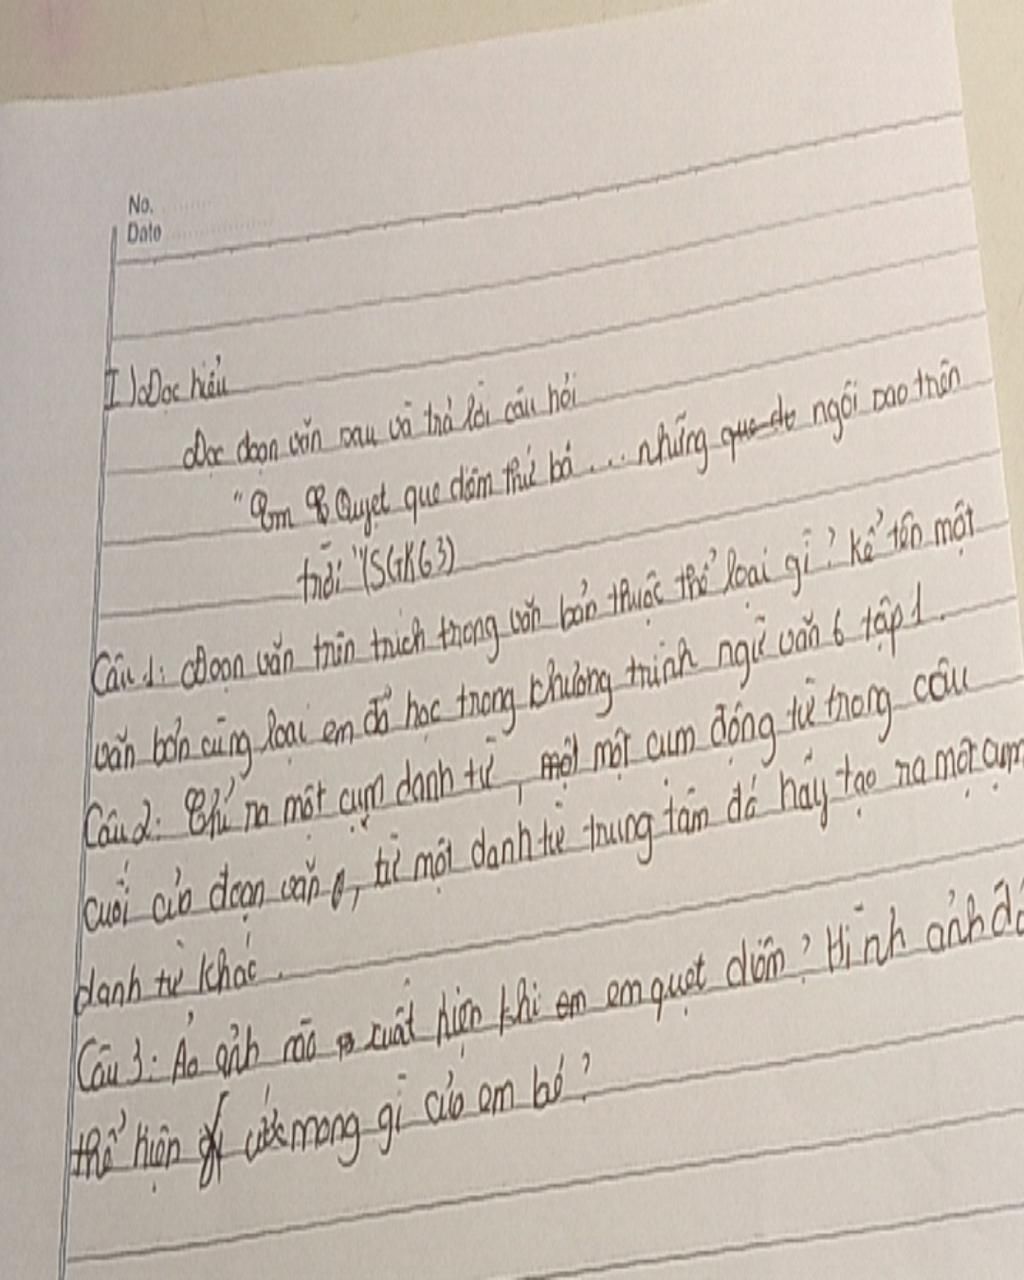 No.
Date
I) Đọc hiểu
Đọc đoạn văn sau và trả lời câu hỏi
"Em Quẹt que diêm thứ ba ... những ngôi sao trên
trời "(SGK63)
Câu 1: Đoạn văn trên trích trong văn bản thuộc thể loại gì? Kể tên một
văn bản cùng loại em đã học trong chương trình ngữ văn 6 tập 1.
Câu 2: Chỉ ra một cụm danh từ, một cụm động từ trong câu
cuối của đoạn văn, từ một danh từ trung tâm đó hãy tạo ra một cụm
danh từ khác.
Câu 3: Ảo ảnh nào xuất hiện khi em em quẹt diêm? Hình ảnh đó
thể hiện ước mong gì của em bé?